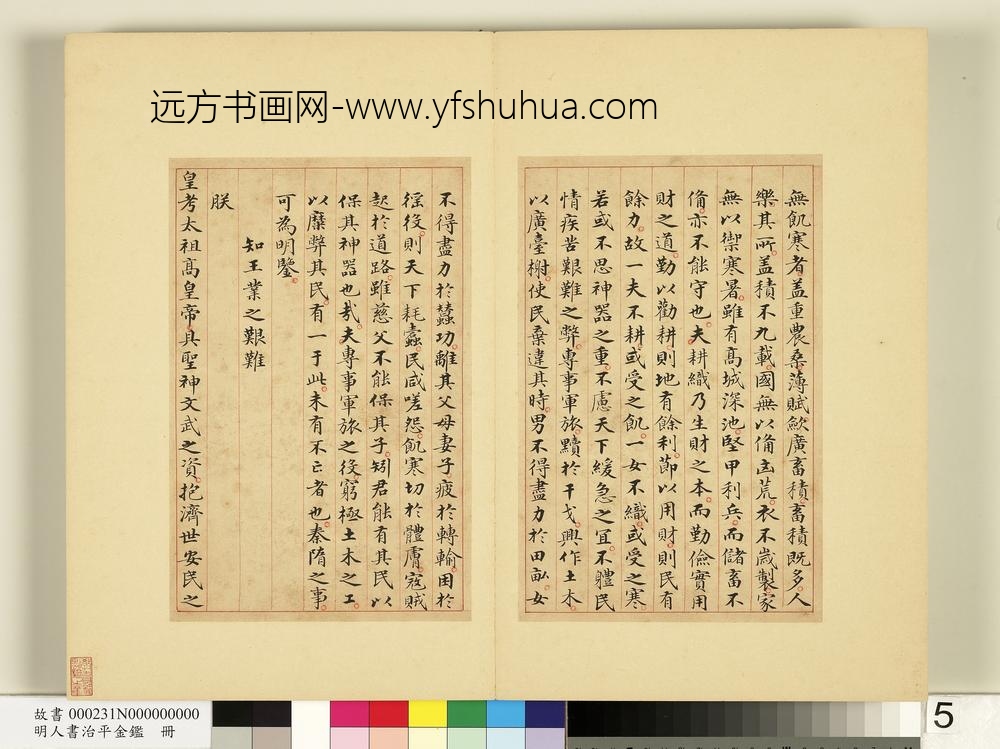 远方书画网-www.yfshuhua.com
無飢寒者盖重農桑薄賦歛廣畜積畜積既多人
樂其所盖積不九載國無以備凶荒衣不歲製家
無以禦寒暑雖有高城深池堅甲利兵而儲畜不
備亦不能守也夫耕織乃生財之本而勤儉實用
財之道勤以勸耕則地有餘利節以用財則民有
餘力故一夫不耕或受之飢一女不織或受之寒
若或不思神器之重不慮天下緩急之宜不體民
情疾苦艱難之弊專事軍旅黷於干戈興作土木
以廣臺榭使民棄違其時男不得盡力於田畝女
不得盡力於蠶功離其父母妻子疲於轉輸困於
徭役則天下耗蠹民咸嗟怨飢寒切於體膚寇賊
起於道路雖慈父不能保其子矧君能有其民以
保其神器也㢤夫專事軍旅之役窮極土木之工
以糜弊其民有一于此未有不亡者也秦隋之事
可為明鑒
知王業之艱難
朕
皇考太祖高皇帝具聖神文武之資抱濟世安民之
故書 000231N000000000
明人書治平金鑑 冊
5